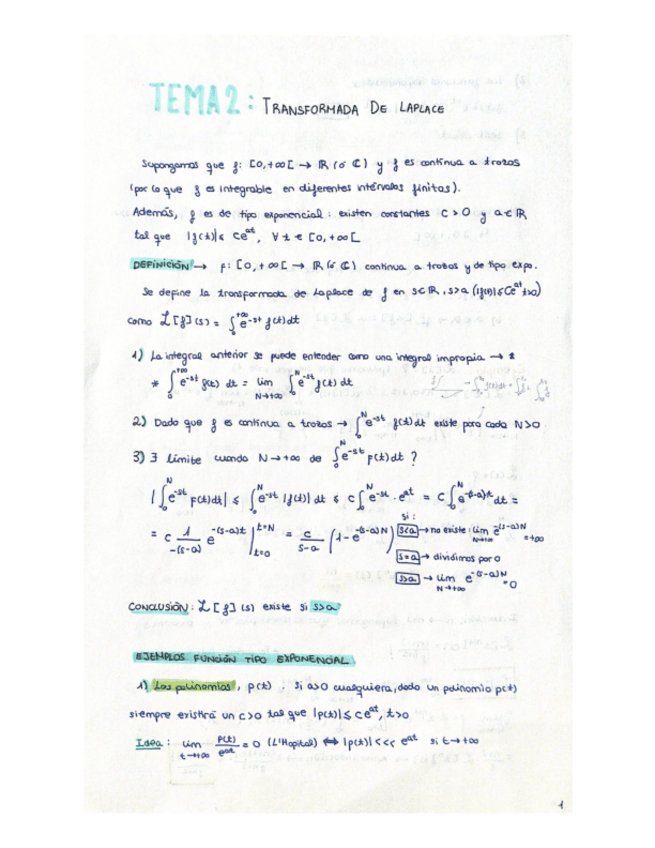 TEMA 2: TRANSFORMADA DE LAPLACE
Supongamos que f: [0,+∞[ → ℝ (ó ℂ) y f es continua a trozos
(por lo que f es integrable en diferentes intervalos finitos).
Además, f es de tipo exponencial: existen constantes C > 0 y a ∈ ℝ
tal que |f(t)| ≤ Ce^{at}, ∀ t ∈ [0,+∞[
DEFINICIÓN → f: [0,+∞[ → ℝ (ó ℂ) continua a trozos y de tipo expo.
Se define la transformada de Laplace de f en s∈ℝ, s>a (|f(t)| ≤ Ce^{at} t>0)
como ℒ[f](s) = ∫_0^{+∞} e^{-st} f(t)dt
1) La integral anterior se puede entender como una integral impropia → *
* ∫_0^{+∞} e^{-st} f(t) dt = lim_{N→+∞} ∫_0^N e^{-st} f(t) dt
2) Dado que f es continua a trozos → ∫_0^N e^{-st} f(t) dt existe para cada N>0.
3) ∃ límite cuando N→+∞ de ∫_0^N e^{-st} f(t) dt ?
|∫_0^N e^{-st} f(t)dt| ≤ ∫_0^N e^{-st} |f(t)| dt ≤ C ∫_0^N e^{-st} · e^{at} = C ∫_0^N e^{-(s-a)t} dt =
= C 1/-(s-a) e^{-(s-a)t} |_{t=0}^{t=N} = C/s-a (1 - e^{-(s-a)N})
si:
s<a → no existe: lim_{N→+∞} e^{-(s-a)N} = +∞
s=a → dividimos por 0
s>a → lim_{N→+∞} e^{-(s-a)N} = 0
CONCLUSIÓN: ℒ[f](s) existe si s>a
EJEMPLOS FUNCIÓN TIPO EXPONENCIAL
1) Los polinomios, p(t). Si a>0 cualquiera, dado un polinomio p(t)
siempre existirá un c>0 tal que |p(t)| ≤ ce^{at}, t>0
Idea: lim_{t→+∞} p(t)/e^{at} = 0 (L'Hopital) ⟺ |p(t)| <<< e^{at} si t→+∞
1